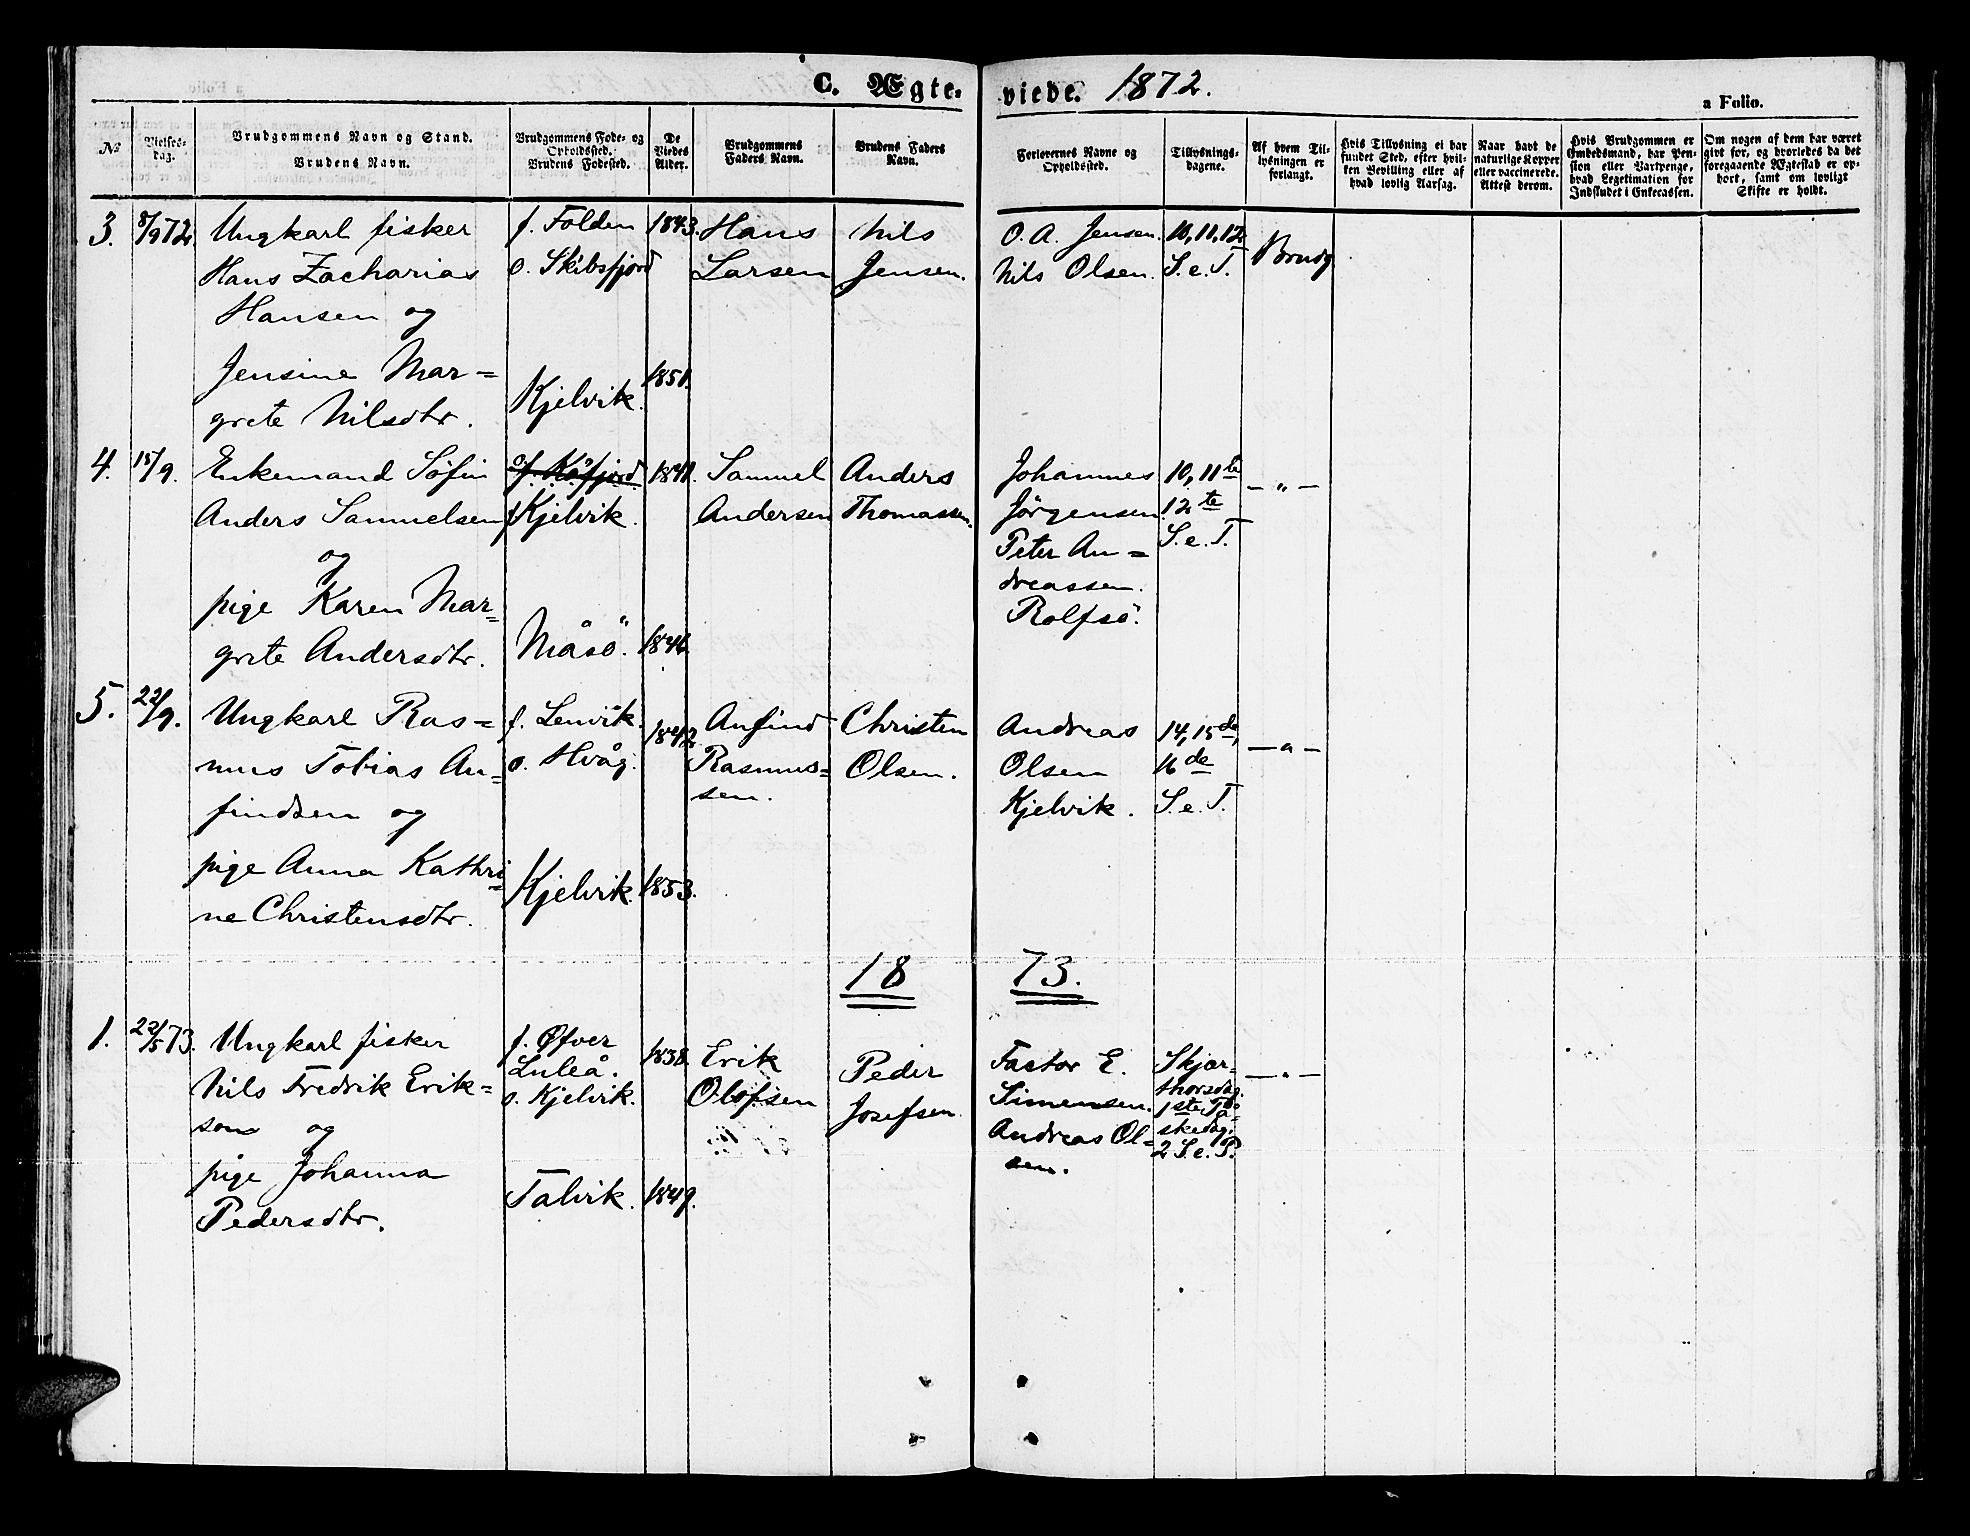 C. Ægte-viede. 1872.
a Folio.
№
Vielses-dag.
Brudgommens Navn og Stand.
Brudens Navn.
Brudgommens Føde- og Opholdssted.
Brudens Fødested.
De Viedes Alder.
Brudgommens Faders Navn.
Brudens Faders Navn.
Forlovernes Navne og Opholdssted.
Tillysnings-dagene.
Af hvem Til-lysningen er forlangt.
Hvis Tillysning ei har fundet Sted, efter hvil-ken Bevilling eller af hvad lovlig Aarsag.
Naar havt de naturlige Kopper eller vaccinerede. Attest derom.
Hvis Brudgommen er Embedsmand, har Pen-sion eller Vartpenge, hvad Legetimation for Indskudet i Enkecassen.
Om nogen af dem har været givt for, og hvorledes da det foregaaende Ægteskab er op-hørt, samt om lovligt Skifte er holdt.
3. 8/9 72. Ungkarl fisker
Hans Zacharias
Hansen og
Jensine Mar=
grete Nilsdtr.
f. Folden
o. Skibsfjord
Kjelvik.
1843.
1851.
Hans
Larsen
Nils
Jensen.
O. A. Jensen.
Nils Olsen.
10, 11, 12
S. e. T.
Brudg
4. 15/9. Enkemand Søfin
Anders Samuelsen
og
pige Karen Mar=
grete Andersdtr.
f. Kåfjord.
f Kjelvik.
Måsö.
1841.
1846
Samuel
Andersen
Anders
Thomassen.
Johannes
Jörgensen
Peter An=
dreassen.
Rolfsö.
10, 11te
12te
S. e. T.
— " —
5. 22/9. Ungkarl Ras=
mus Tobias An=
findsen og
pige Anna Kathri=
ne Christensdtr.
f. Lenvik.
o. Hvåg.
Kjelvik.
1842
1853.
Anfind
Rasmus=
sen.
Christen
Olsen.
Andreas
Olsen
Kjelvik.
14, 15de,
16de
S. e. T.
— " —
18 73.
1. 22/5 73. Ungkarl fisker
Nils Fredrik Erik=
son og
pige Johanna
Pedersdtr.
f. Øfver
Luleå.
o. Kjelvik.
Talvik.
1838.
1849.
Erik
Olofsen
Peder
Josefsen.
Factor E.
Simensen.
Andreas Ol=
sen.
Skjær=
thorsdag.
1ste På=
skedag.
2 S. e. P.
— " —